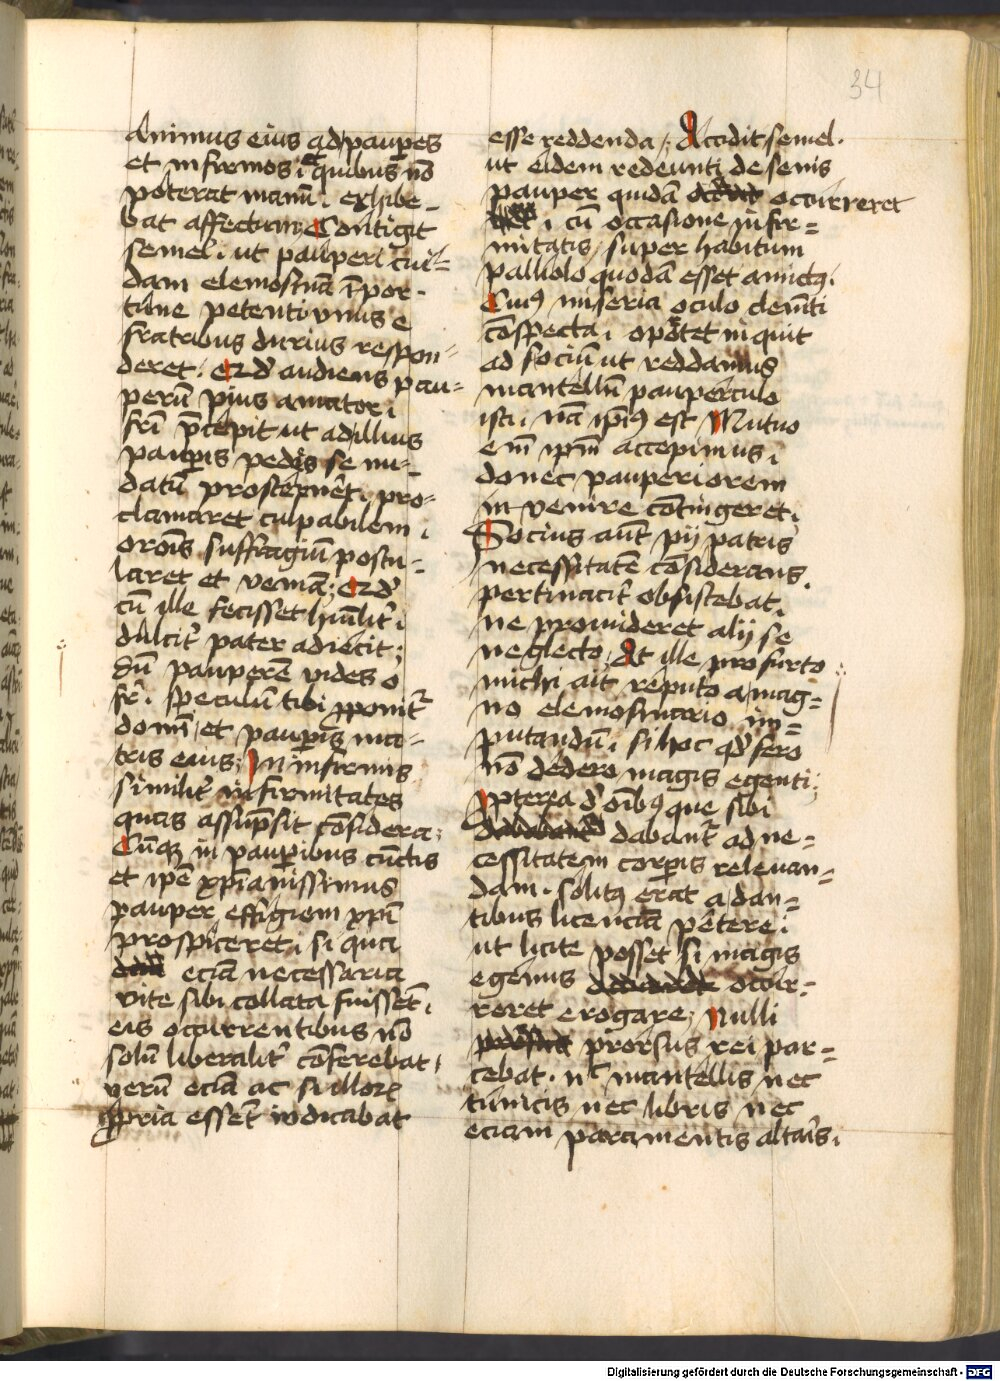 34
Animus eius ad paup̲es
et infirmos i quibus nō
poterat manū. exhibe-
bat affectum; Contigit
semel. ut pauperi cui=
dam elemosinā īpor-
tune petenti vnus e
fratribus durius respon=
deret. Qd̓ audiens pau=
perū pius amator.
frī p̄cepit ut ad illius
paup̲is pedes se nu=
datū prosterneret. pro=
clamaret culpabilem.
orōnis suffragiū postu=
laret et veniā; Qd̓
cū ille fecisset hūilit̓.
dulcit̓ pater adiecit;
dū pauperē vides o
fr̄. speculū tibi ꝓponit̓
domī et paup̲is ma=
tris eius; In infirmis
similit̓ infirmitates
quas assūpsit cōsidera;
Cūqꝫ in paup̲ibus cūctis
et ipē xp̄ianissimus
pauper effigiem xp̄i
prospiceret. si qua
eciā necessaria
vite sibi collata fuissēt.
eis occurrentibus nō
solū liberalit̓ cōferebat.
verū eciā ac si illoꝝ
ꝓpria essēt iudicabat
esse reddenda; Accidit semel.
ut eidem redeunti de senis
pauper quidā occurreret
. cū occasione infir=
mitatis super habitum
palliolo quodā esset amictꝰ.
Cuiꝰ miseria oculo clemēti
cōspecta. oportet inquit
ad sociū ut reddamus
mantellū pauperculo
isti. nā ip̄iꝰ est Mutuo
em̄ ip̄m accepimus.
donec pauperiorem
invenire cōtingeret.
Socius aūt pij patris
necessitatē cōsiderans.
pertinacit̓ obsistebat.
ne prouideret alij se
neglecto. At ille pro furto
michi ait reputo a mag=
no elemosinario im=
putandū. si hoc qd̓ fero
nō dedero magis egenti;
ꝓpterea d̓ oībꝰ que sibi
dabant̓ ad ne=
cessitatem corp̲is releuan=
dam. solitꝰ erat a dan=
tibus licenciā petere.
ut licite posset si magis
egenus occur=
reret erogare; Nulli
prorsus rei par=
cebat. nc̄ mantellis nec
tunicis nec libris nec
eciam paramentis altaris.
Digitalisierung gefördert durch die Deutsche Forschungsgemeinschaft - DFG